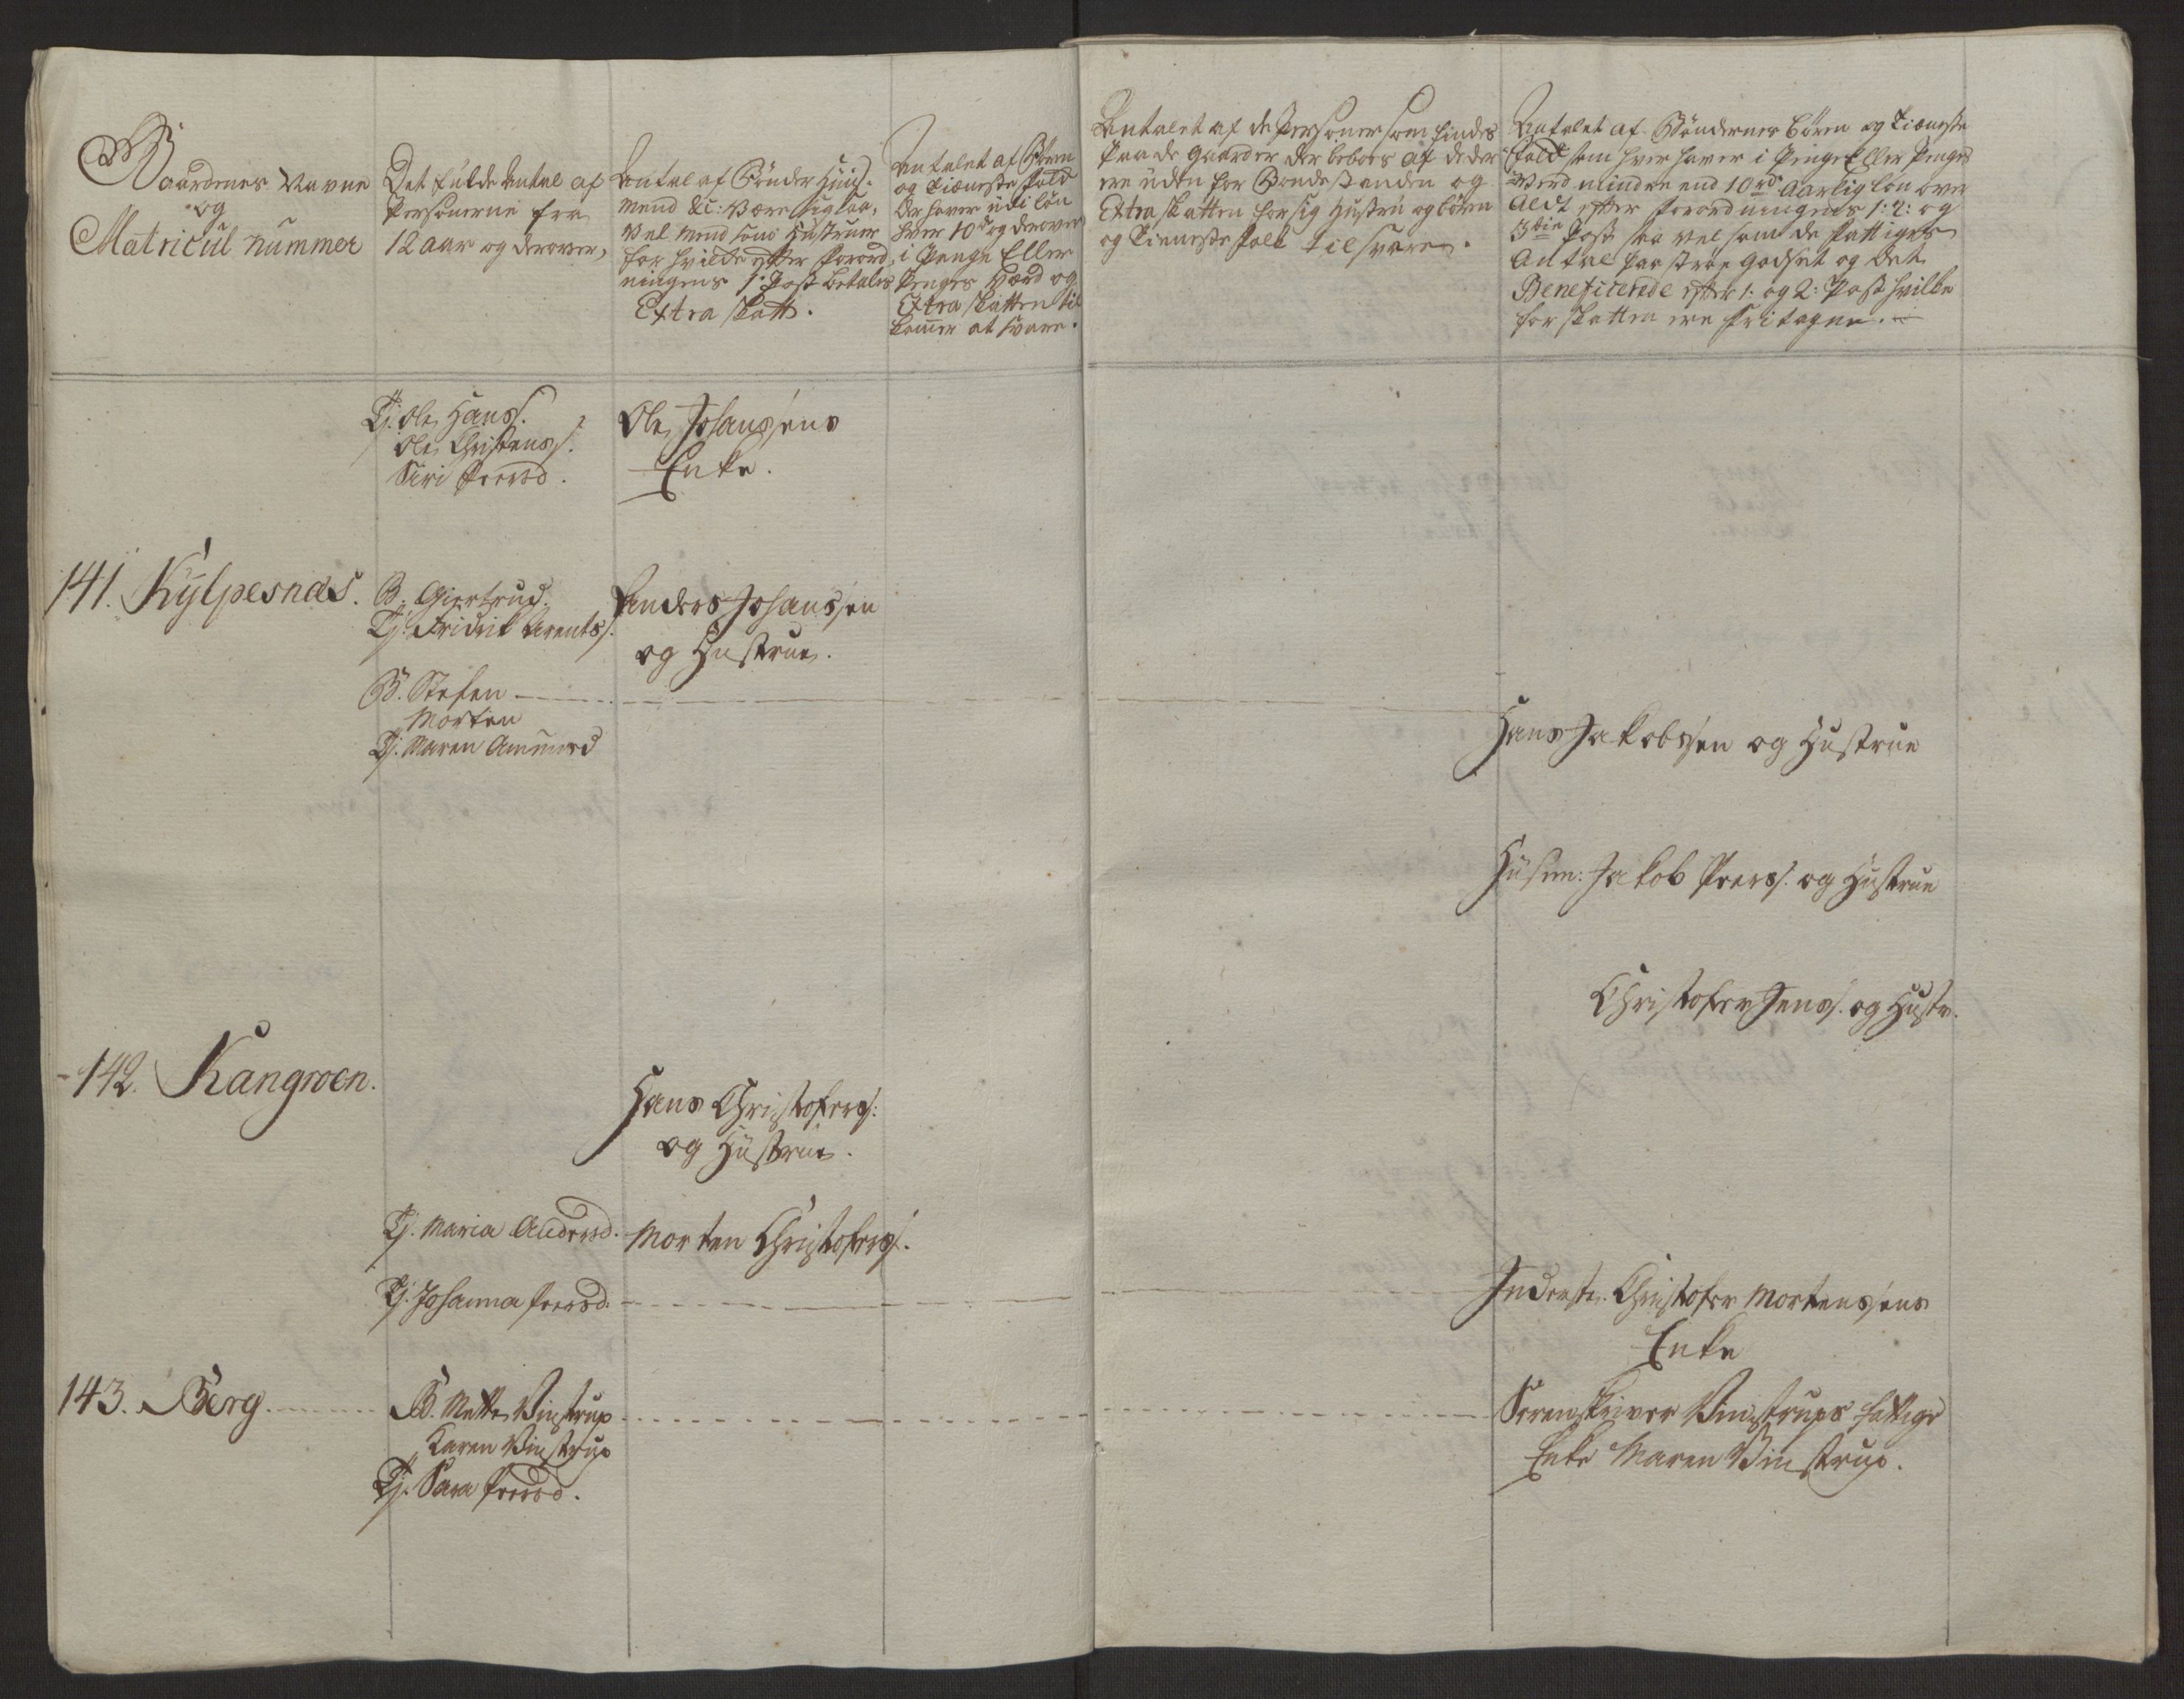 Gaardenes Navne
og
Matricul Nummer
Det fulde Antal af
Personerne fra
12 aar og derover,
Antal af Bønder Huus-
mend &c: være sig saa-
vel mend som Hustruer
for hvilke efter Forord-
ningens 1. Post betales
Extra skatt.
Antalet af Børn
og Tieneste Folk
der haver udi løn
hver 10 rd og derover
i Penge Eller
Penges Værd og
Extra skatten til
kommer at svare.
Antalet af de Personer som findes
paa de Gaarder der beboes af de der
ere uden for Bondestanden og
Extra skatten for sig Hustru og børn
og Tieneste Folk tilsvare.
Antalet af Bøndernes Børn og Tieneste
Folk som hver haver i Penge Eller Penges
Værd mindre end 10 rd Aarlig løn over
alt efter Forordningens 1: 2: og
3die Post saa vel som de fattiges
Antal paa stræe Godset og det
Beneficerede efter 1: og 2: Post hvilke
for skatten ere fritagne.
Tj. Ole Hanss.
Ole Christenss.
Siri Peersd.
Ole Johansens
Enke.
141. Kylpesnæs.
B. Giertrud.
Tj. Fridrik Arentss.
Anders Johansen
og Hustrue.
B. Stefen
Morten
Tj. Maren Amundsd
Hans Jakobsen og Hustrue
Huusm: Jakob Peerss. og Hustrue
Christofer Jenss. og Hustr.
142. Kangroen.
Hans Christoferss:
og Hustrue.
Tj. Maria Andersd.
Morten Christoferss.
Tj. Johanna Peersd.
Inderste. Christofer Mortensens
Enke
143. Berg.
B. Mette Vinstrup
Karen Vinstrup
Tj. Sara Peersd.
Sorenskriver Vinstrups fattige
Enke Maren Vinstrup.